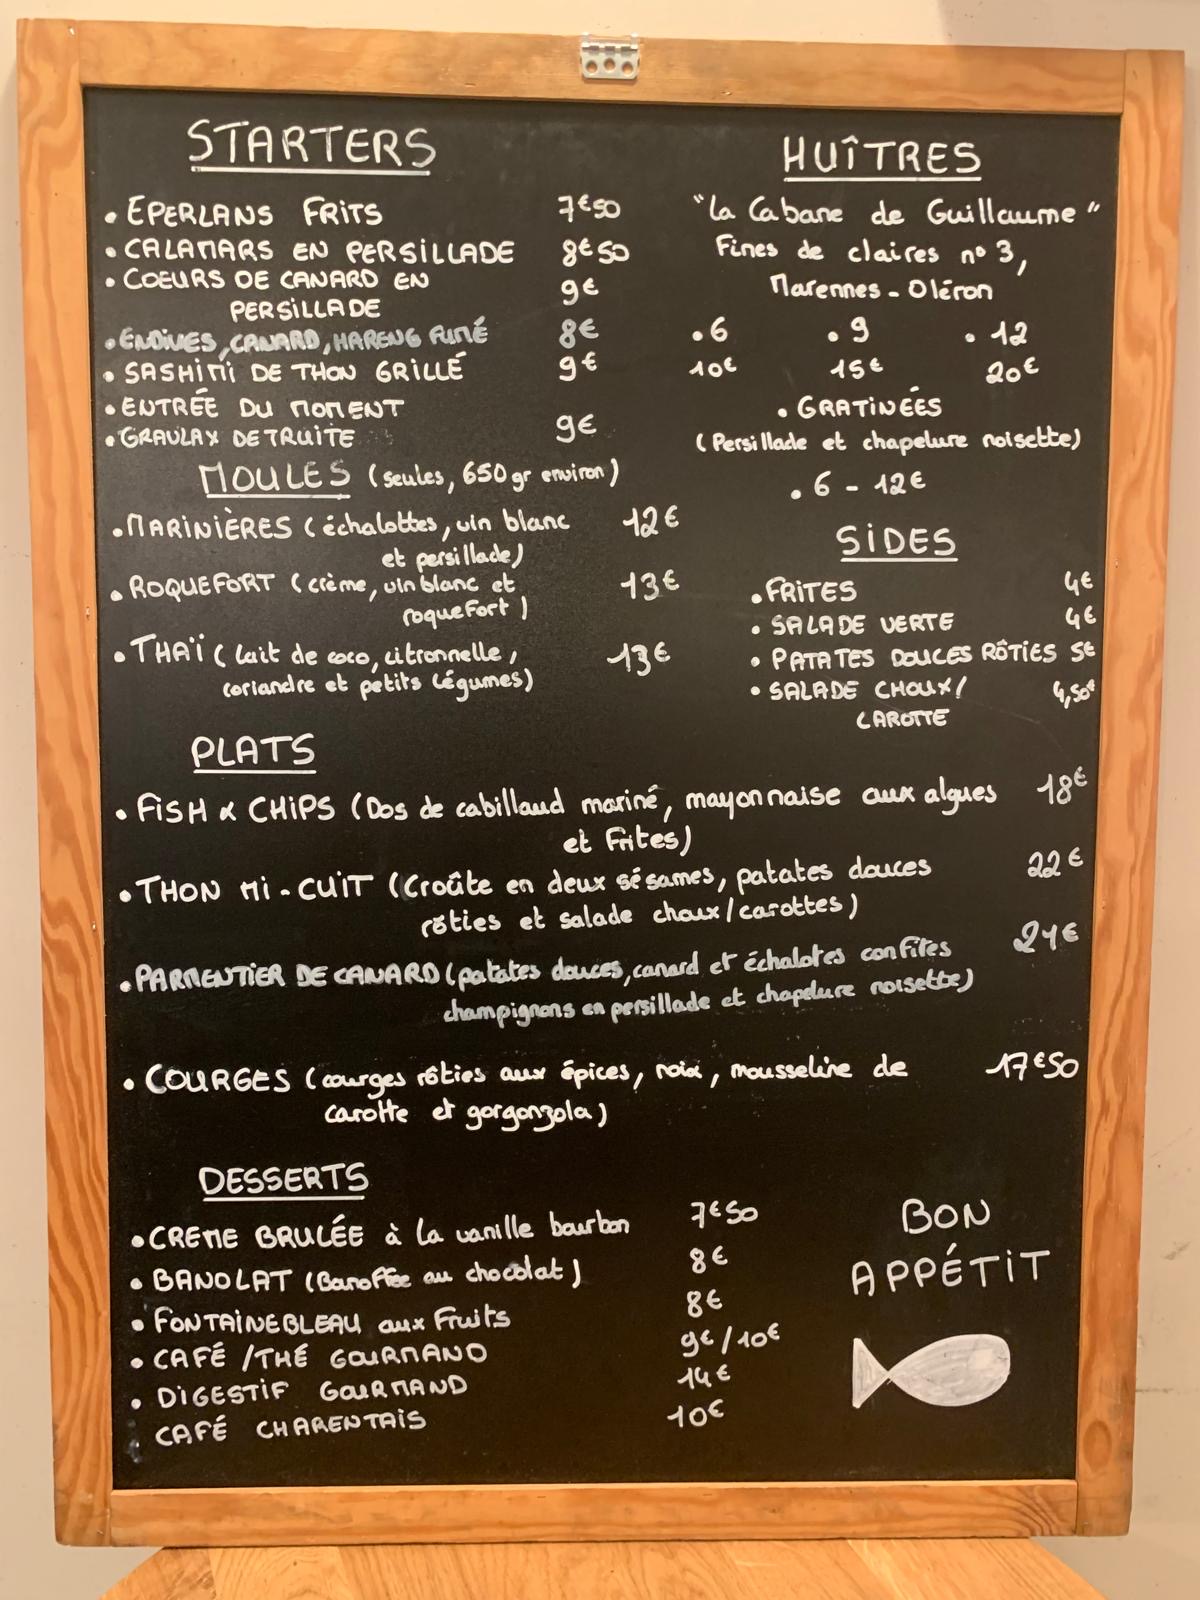 STARTERS
• EPERLANS FRITS 7€50
• CALAMARS EN PERSILLADE 8€50
• COEURS DE CANARD EN
PERSILLADE 9€
• ENDIVES, CANARD, HARENG FUMÉ 8€
• SASHIMI DE THON GRILLÉ 9€
• ENTRÉE DU MOMENT
• GRAULAX DE TRUITE 9€
MOULES (seules, 650gr environ)
• MARINIÈRES (échalottes, vin blanc 12€
et persillade)
• ROQUEFORT (crème, vin blanc et 13€
roquefort)
• THAÏ (lait de coco, citronnelle, 13€
coriandre et petits légumes)
HUÎTRES
"La Cabane de Guillaume"
Fines de claires n° 3,
Marennes - Oléron
• 6 • 9 • 12
10€ 15€ 20€
• GRATINÉES
(Persillade et chapelure noisette)
• 6 - 12€
SIDES
• FRITES 4€
• SALADE VERTE 4€
• PATATES DOUCES RÔTIES 5€
• SALADE CHOUX/ 4,50€
CAROTTE
PLATS
• FISH & CHIPS (Dos de cabillaud mariné, mayonnaise aux algues 18€
et Frites)
• THON MI-CUIT (Croûte en deux sésames, patates douces 22€
rôties et salade choux/carottes)
• PARMENTIER DE CANARD (patates douces, canard et échalotes confites 21€
champignons en persillade et chapelure noisette)
• COURGES (courges rôties aux épices, noix, mousseline de 17€50
carotte et gorgonzola)
DESSERTS
• CREME BRULÉE à la vanille bourbon 7€50
• BANOLAT (Banoffee au chocolat) 8€
• FONTAINEBLEAU aux Fruits 8€
• CAFÉ /THÉ GOURMAND 9€/10€
• DIGESTIF GOURMAND 14€
CAFÉ CHARENTAIS 10€
BON
APPÉTIT